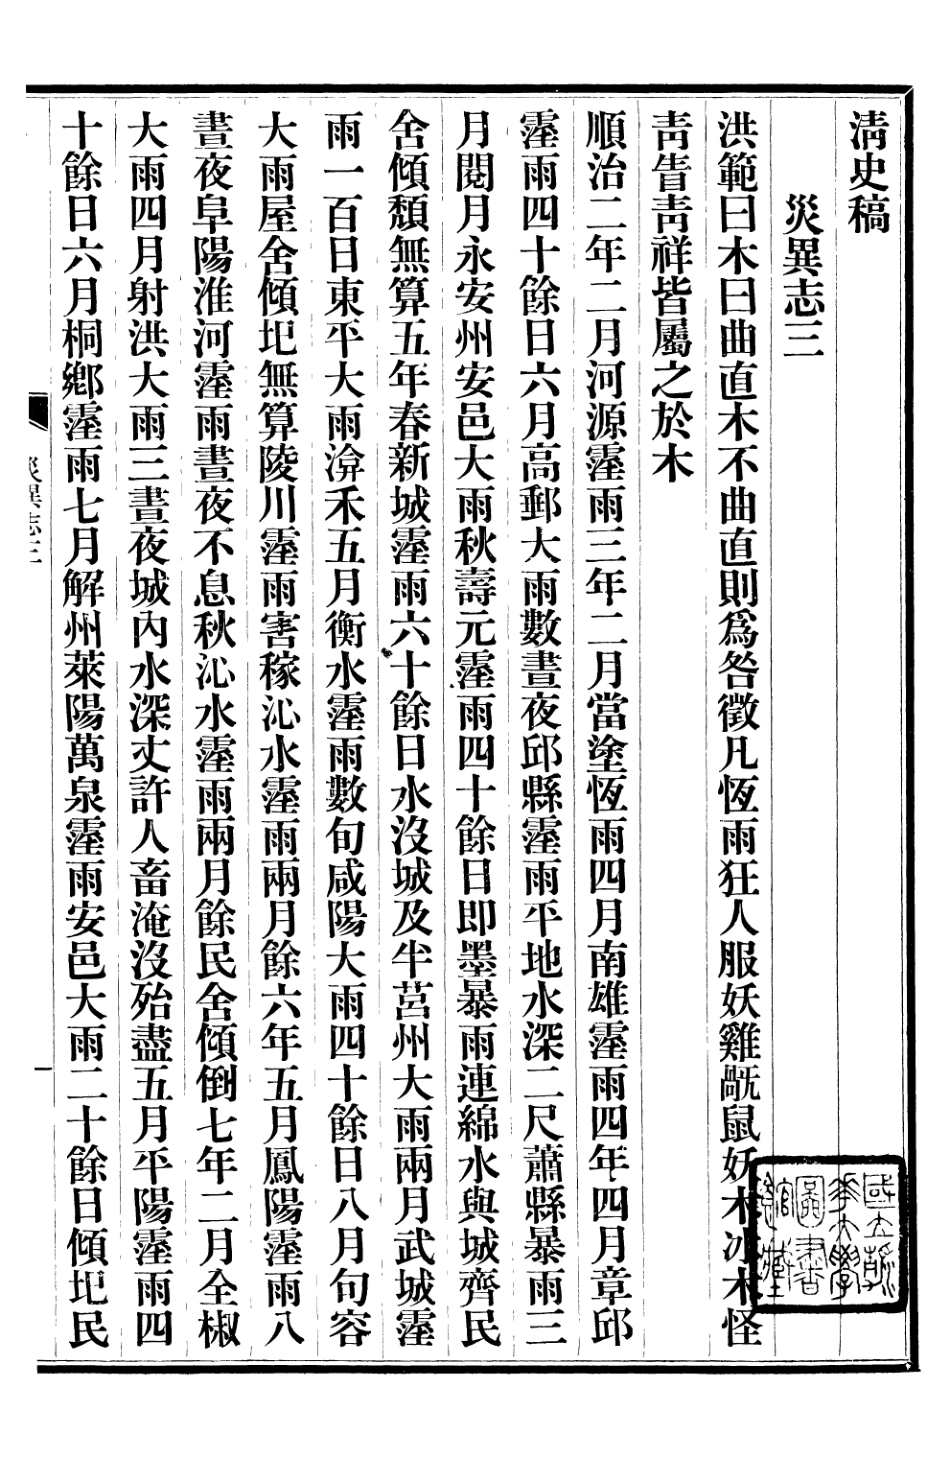 清史稿
災異志三
洪範曰木曰曲直木不曲直則爲咎徵凡恆雨狂人服妖雞旤鼠妖木冰木怪
靑眚靑祥皆屬之於木
順治二年二月河源霪雨三年二月當塗恆雨四月南雄霪雨四年四月章邱
霪雨四十餘日六月高郵大雨數晝夜邱縣霪雨平地水深二尺蕭縣暴雨三
月閱月永安州安邑大雨秋壽元霪雨四十餘日即墨暴雨連綿水與城齊民
舍傾頹無算五年春新城霪雨六十餘日水沒城及半莒州大雨兩月武城霪
雨一百日東平大雨渰禾五月衡水霪雨數旬咸陽大雨四十餘日八月句容
大雨屋舍傾圮無算陵川霪雨害稼沁水霪雨兩月餘六年五月鳳陽霪雨八
晝夜阜陽淮河霪雨晝夜不息秋沁水霪雨兩月餘民舍傾倒七年二月全椒
大雨四月射洪大雨三晝夜城內水深丈許人畜淹沒殆盡五月平陽霪雨四
十餘日六月桐鄉霪雨七月解州萊陽萬泉霪雨安邑大雨二十餘日傾圮民
災異志三
一
國立清
華大學
圖書
館藏